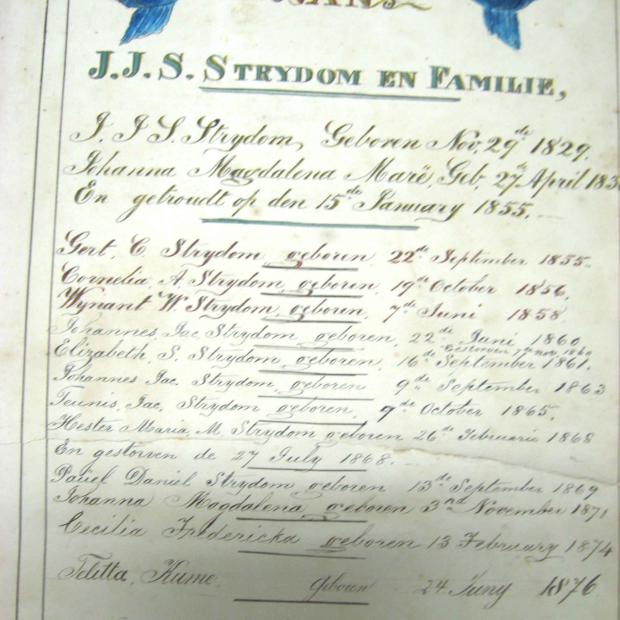 J.J.S. STRYDOM EN FAMILIE,
J. J S. Strydom, Geboren Nov, 29de 1829.
Johanna Magdalena Maré, Geb, 27de April
En getroudt op den 15de January 1855.
Gert, C Strydom geboren, 22de September 1855.
Cornelia, A, Strydom, geboren, 19de October 1856,
Wynant W. Strydom, geboren, 7de Juni 1858
Johannes, Jac, Strydom, geboren, 22de Juni 1860
Elizabeth, S. Strydom, geboren, 16de September 1861.
Johannes Jac. Strydom geboren 9de September 1863
Teunis, Jac, Strydom geboren, 9de October 1865,
Hester Maria, M Strydom geboren 26de Februarie 1868
En gestorven de 27 July 1868.
Pauel Daniel Strydom geboren 13de September 1869
Johanna Magdalena, geboren 3nd November 1871
Cecilia Fredericka geboren 13 February 1874
geboren 24 Juny 1876